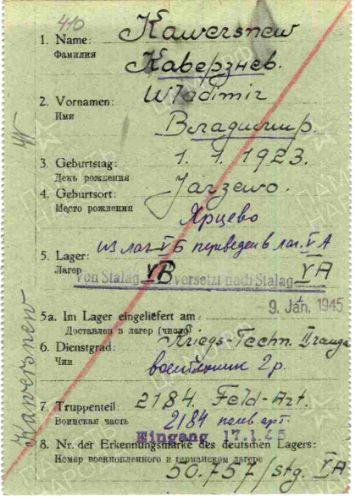 410
1. Name: Kawersnew
Фамилия Каверзнев.
2. Vornamen: Wladimir
Имя Владимир.
3. Geburtstag: 1. 1. 1923.
День рождения
4. Geburtsort: Jarzewo.
Место рождения Ярцево
из лаг. V Б переведен в лаг. V A
5. Lager: VB VA
Лагерь von Stalag versetzt nach Stalag
9. Jan. 1945
5a. Im Lager eingeliefert am:
Доставлен в лагерь (число)
6. Dienstgrad: Kriegs-Techn. II ranga
Чин воентехник 2 р.
7. Truppenteil: 2184. Feld-Art.
Воинская часть 2184 полев. арт.
Eingang 17.1.45
8. Nr. der Erkennungsmarke des deutschen Lagers:
Номер военнопленного в германском лагере
50.757/Stg. VA
Kawersnew